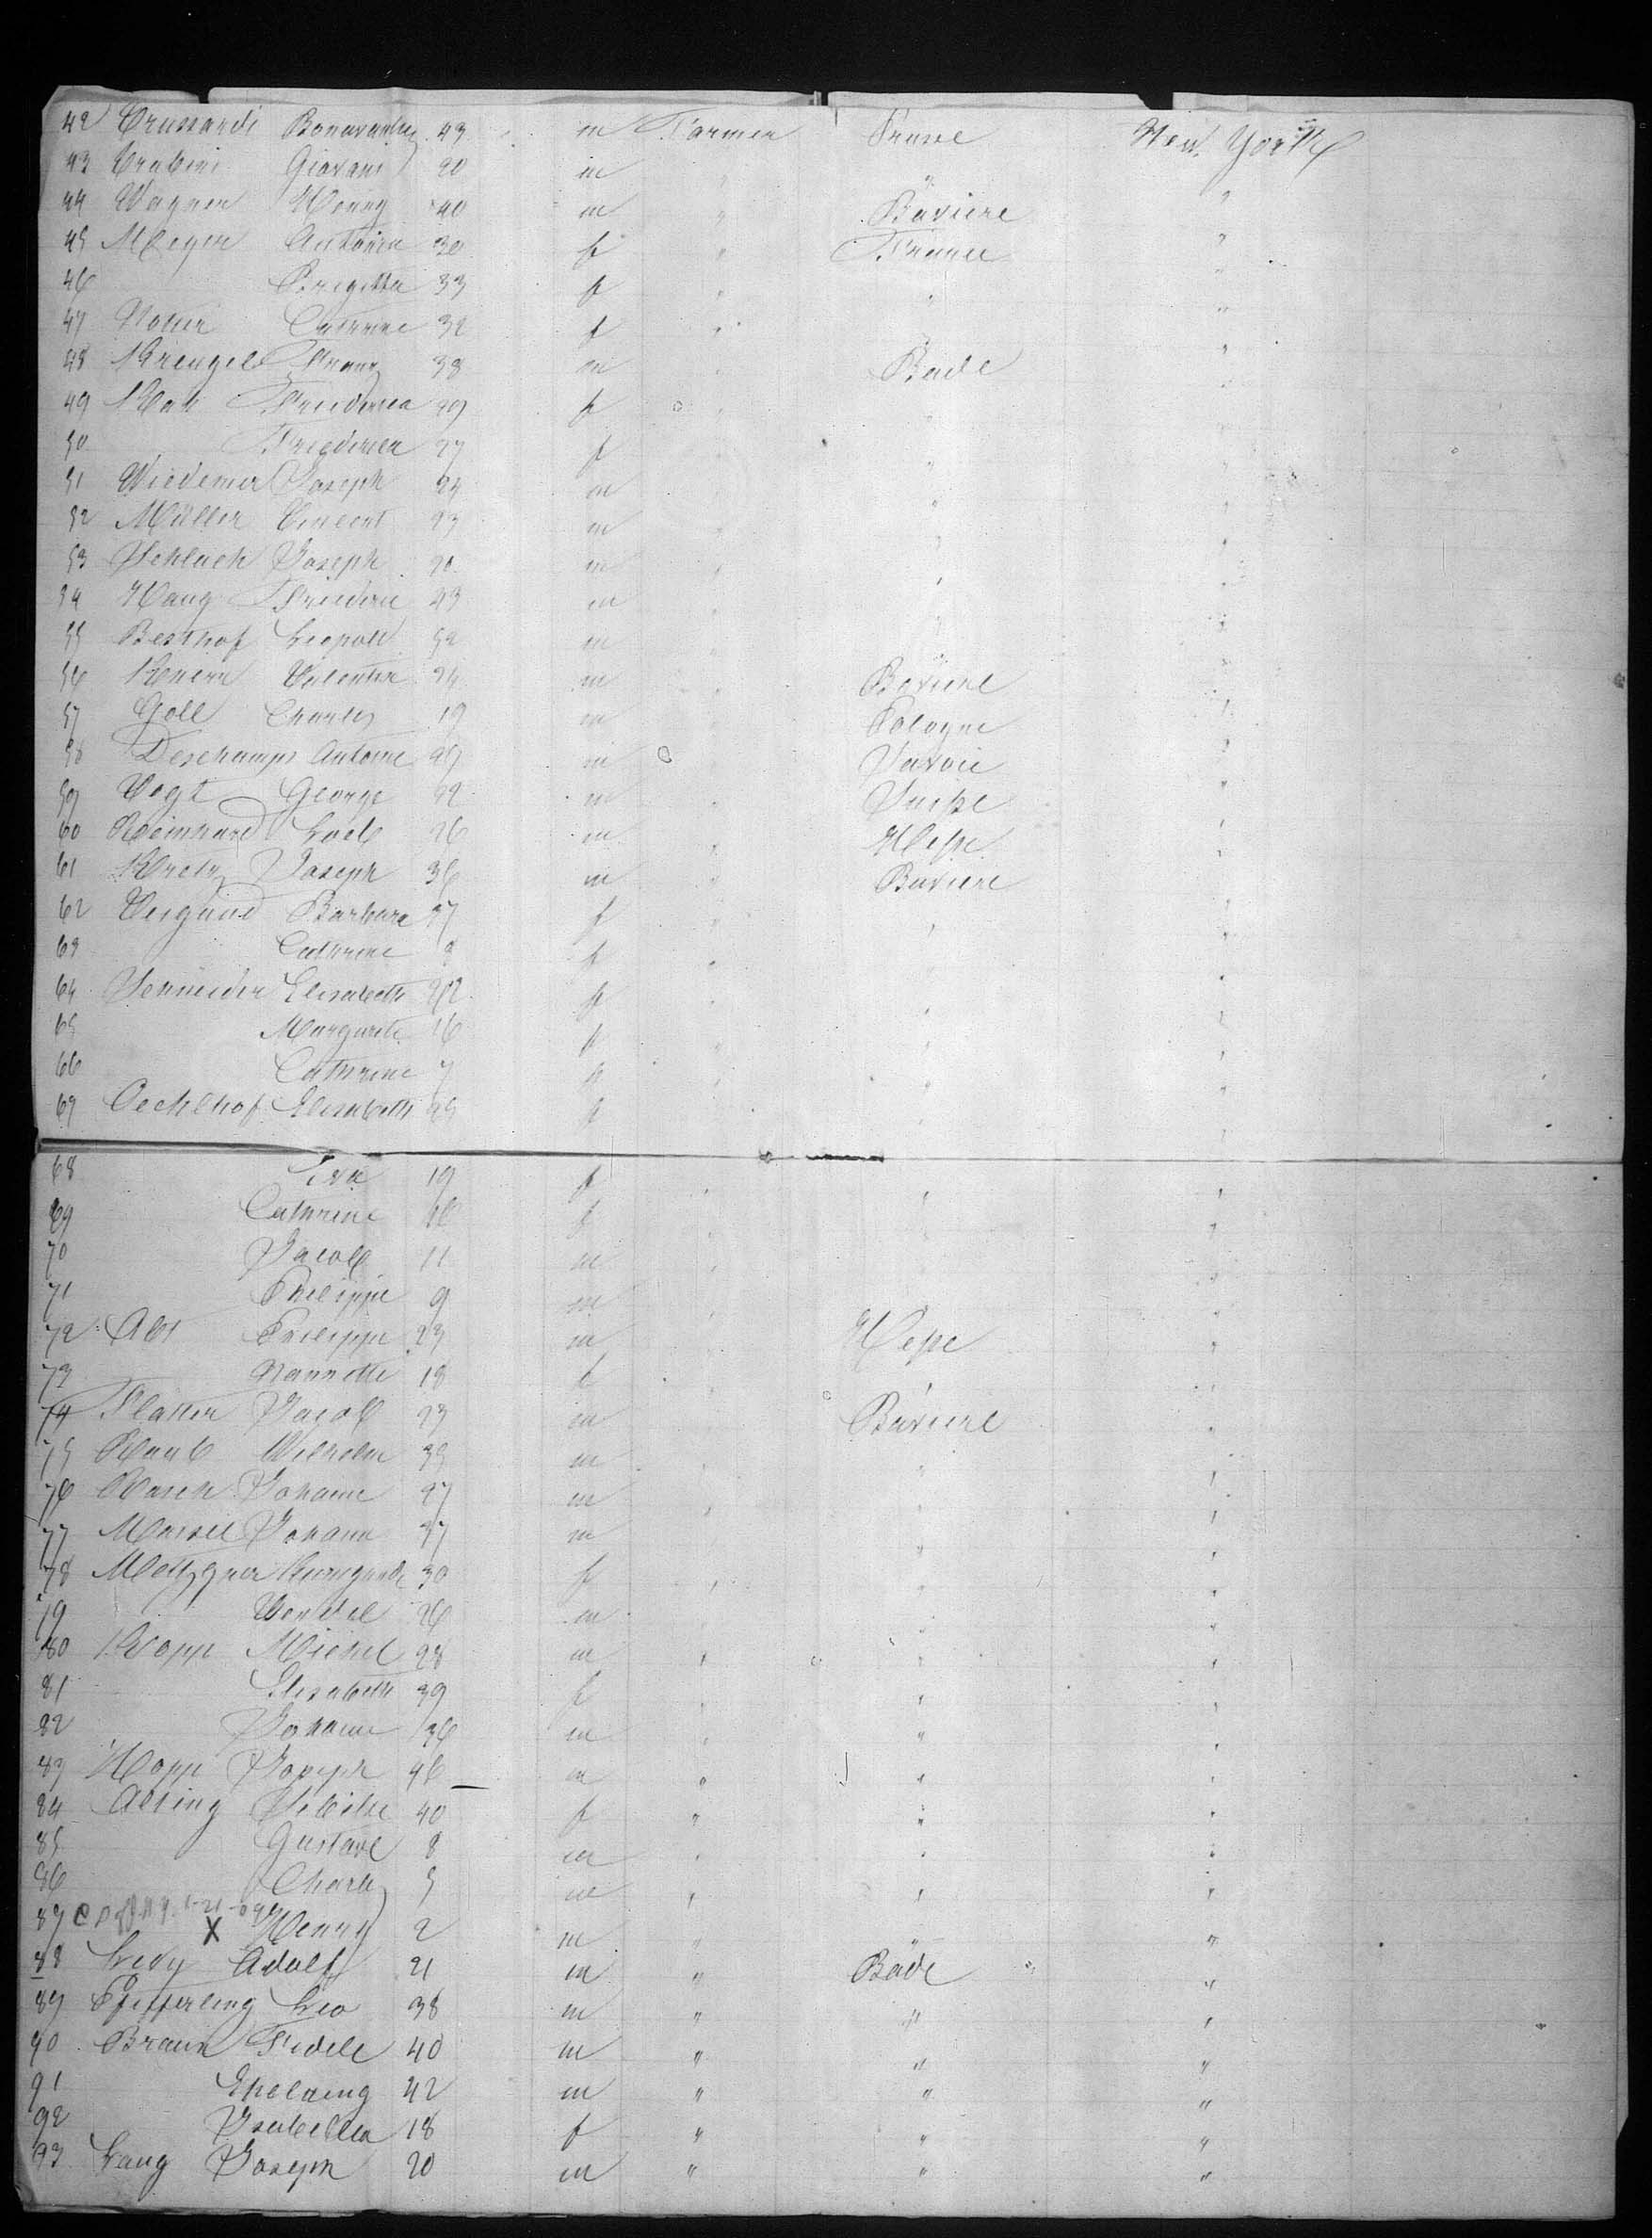 42 Trussardi Bonaventu 43 m Farmer New York
43 Giovani 20 m " " "
44 Wagner Henry 40 m " Baviere "
45 Meyer Antonia 30 f " France "
46 Brigitta 33 f " " "
47 Notter Cathrine 32 f " " "
48 Krengel Franz 38 m " Bade "
49 Friederica 29 f " " "
50 Friederica 27 f " " "
51 Wiedemer Joseph 24 m " " "
52 Müller Vincent 23 m " " "
53 Schlach Joseph 20 m " " "
54 Haug Friederic 43 m " " "
55 Besthof Leopold 52 m " " "
56 Valentin 24 m " Baviere "
57 Goll Charles 19 m " Pologne "
58 Deschamps Antoine 29 m " Savoie "
59 Vogt George 52 m " Suisse "
60 Reinhard Loeb 26 m " Hesse "
61 Kretz Joseph 36 m " Baviere "
62 Barbara 37 f " " "
63 Cathrine 9 f " " "
64 Schneider Elisabeth 22 f " " "
65 Margareta 16 f " " "
66 Cathrine 7 f " " "
67 Oechlhof Elisabeth 45 f " " "
68 Eva 19 f " " "
69 Cathrine 16 f " " "
70 Jacob 11 m " " "
71 Philippe 9 m " " "
72 Abt Philippe 23 m " Hesse "
73 Nannette 18 f " " "
74 Flatter Jacob 23 m " Baviere "
75 Raub Wilhelm 35 m " " "
76 Johann 27 m " " "
77 Johann 37 m " " "
78 Metzgner Kunigunde 30 f " " "
79 Wendel 26 m " " "
80 Klopp Michel 28 m " " "
81 Elisabeth 39 f " " "
82 Johann 36 m " " "
83 Hopp Joseph 46 m " " "
84 Alsing 40 f " " "
85 Gustave 8 m " " "
86 Charls 5 m " " "
87 X Henry 2 m " " "
88 Levy Adolf 21 m " Bade "
89 Leo 38 m " " "
90 Braun Fidele 40 m " " "
91 42 m " " "
92 Isabella 18 f " " "
93 Lang Joseph 20 m " " "